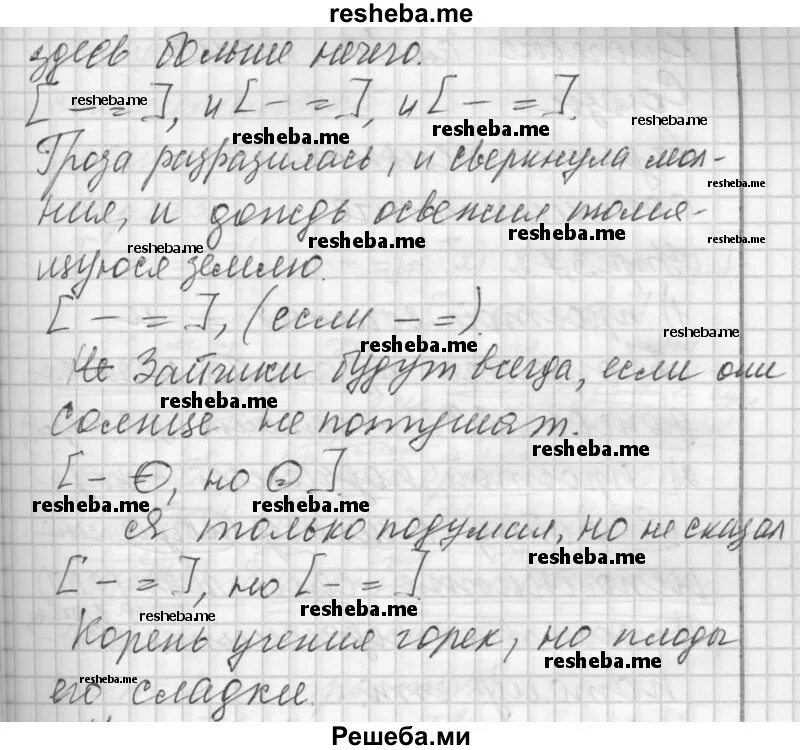 resheba.me
здесь больше нечего.
[ resheba.me = ], и [ – = ], и [ – = ].
resheba.me resheba.me resheba.me
Гроза разразилась, и сверкнула мол-
resheba.me
ния, и дождь освежил томя-
resheba.me resheba.me resheba.me resheba.me
щуюся землю.
[ – = ], (если – =).
resheba.me resheba.me
Зайчики будут всегда, если они
resheba.me
солнце не потушат.
resheba.me
[ – ⊜, но ⊜ ].
resheba.me resheba.me
Я только подумал, но не сказал
resheba.me
[ – = ], но [ – = ].
resheba.me resheba.me
Корень учения горек, но плоды
resheba.me
его сладки.
resheba.me
Решеба.ми